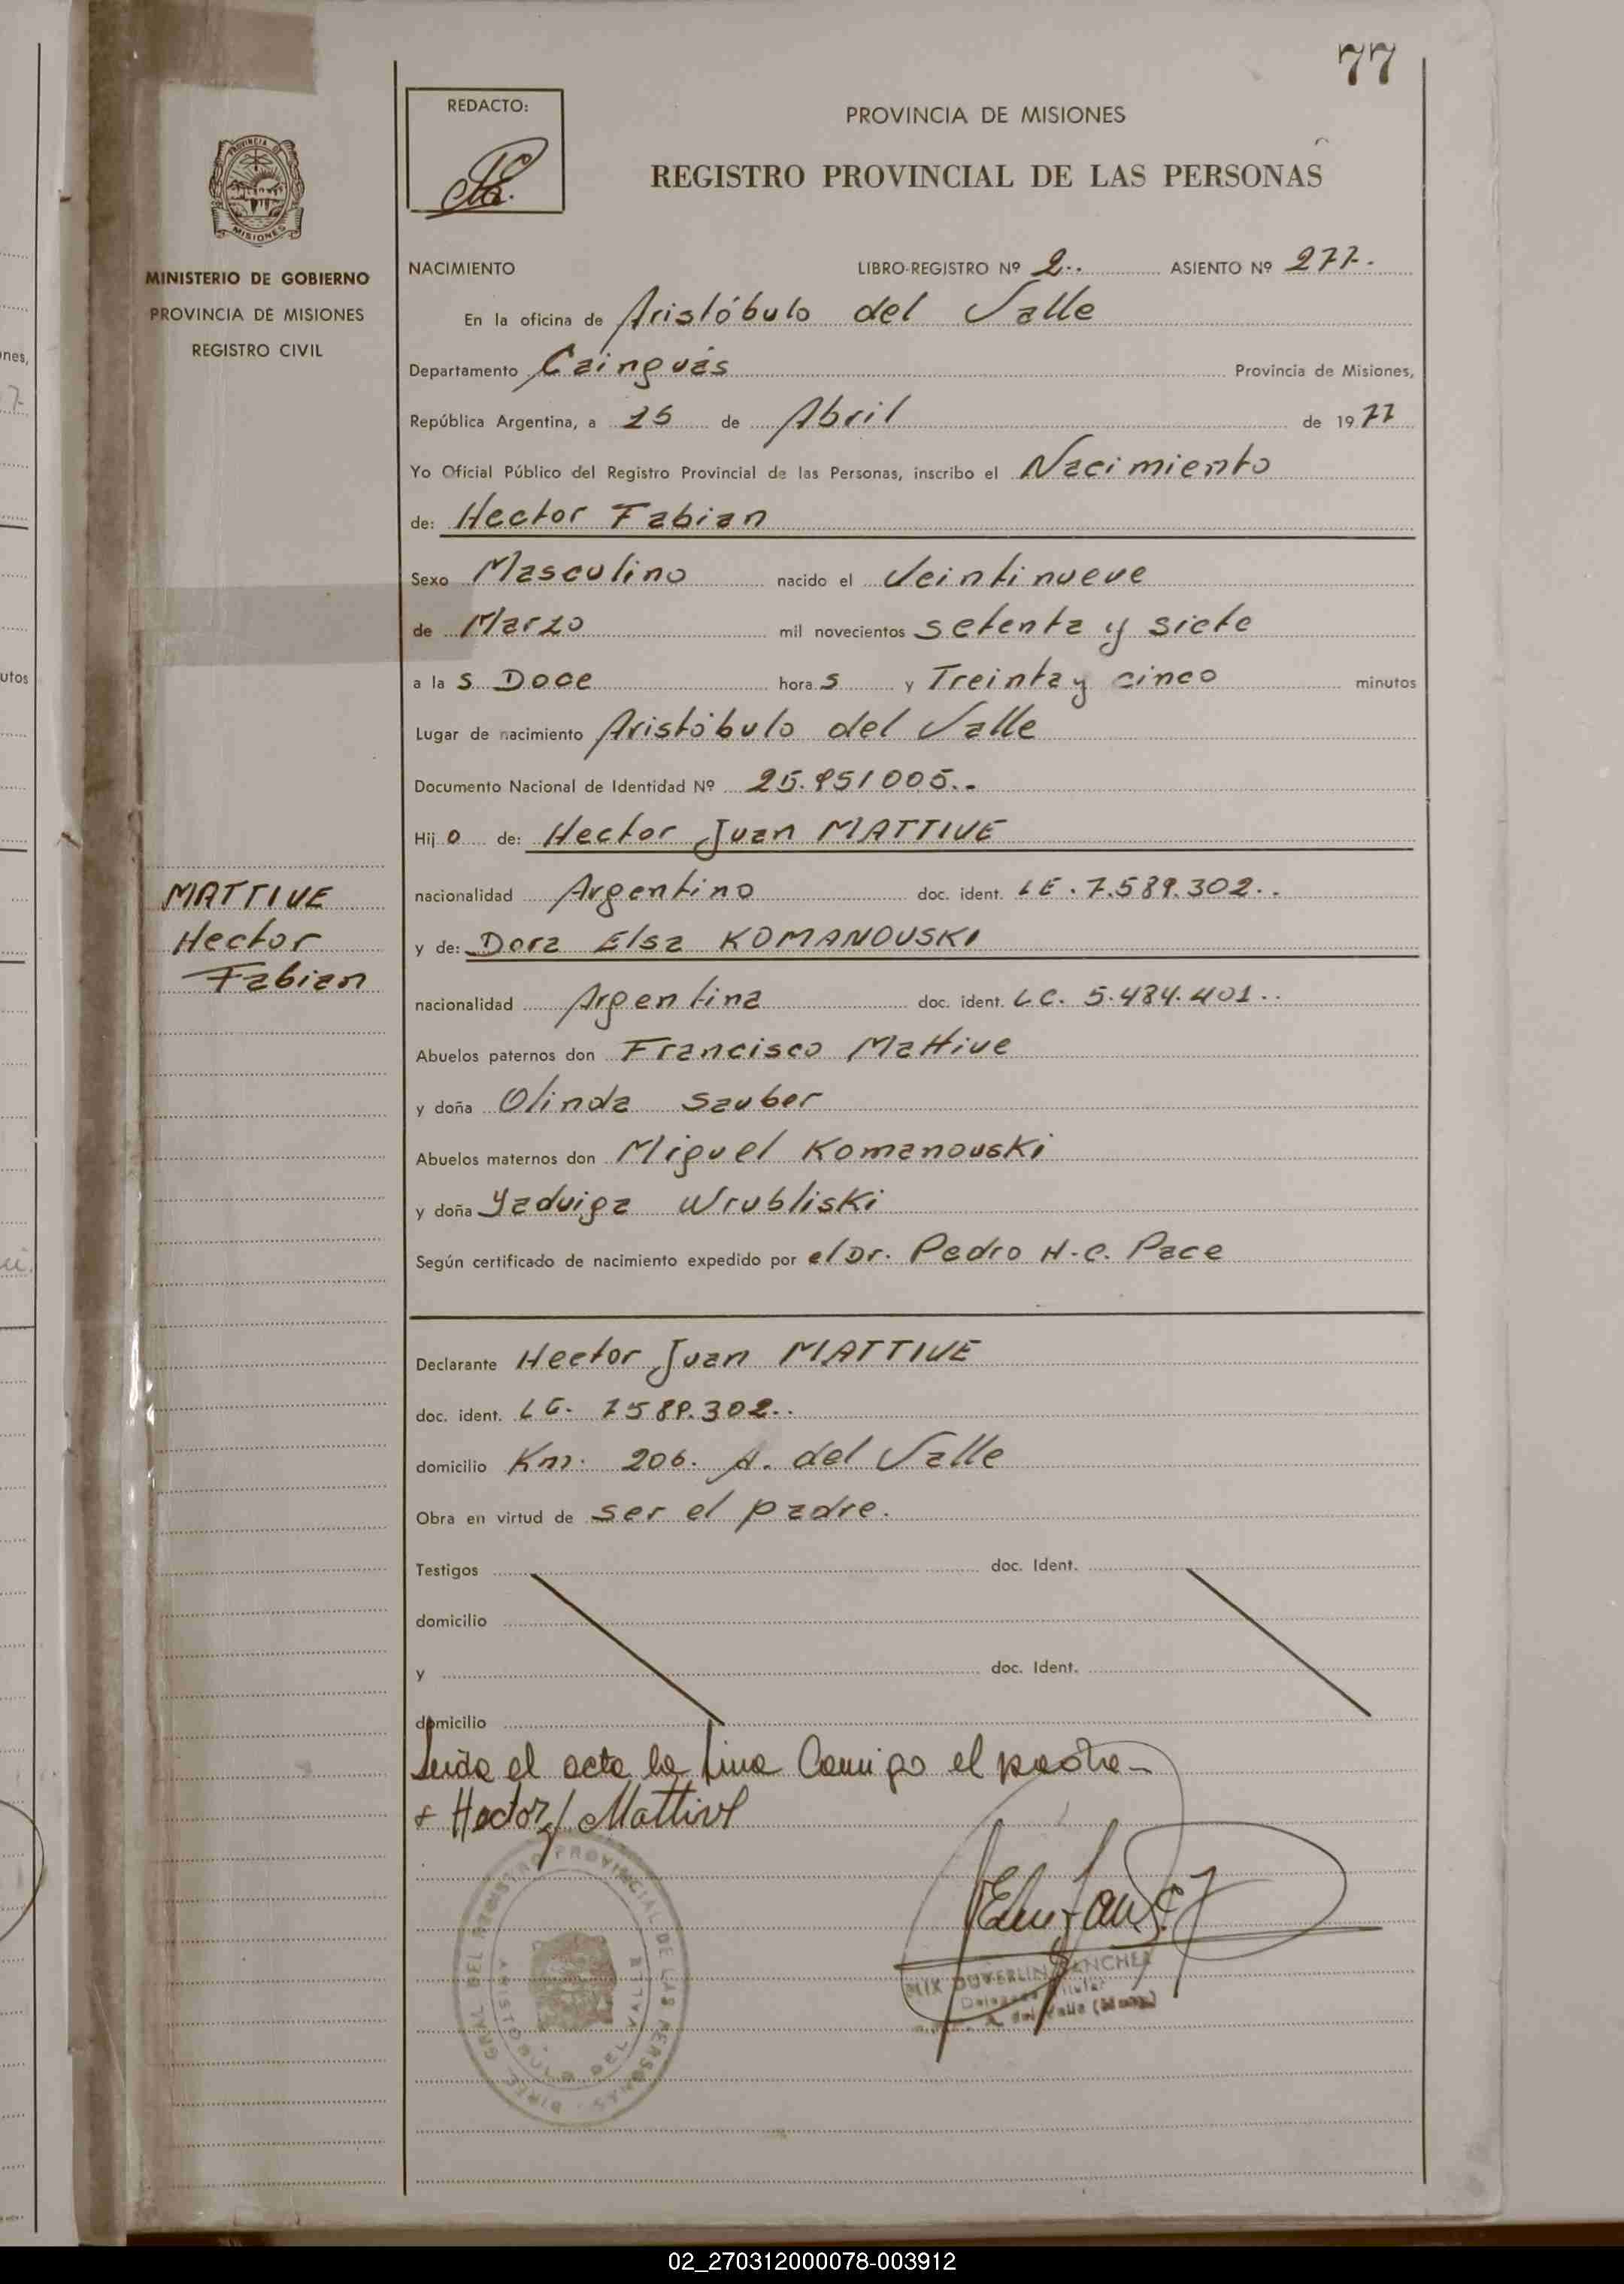 77
REDACTO:
PROVINCIA DE MISIONES
REGISTRO PROVINCIAL DE LAS PERSONAS
PROVINCIA DE
MISIONES
MINISTERIO DE GOBIERNO
PROVINCIA DE MISIONES
REGISTRO CIVIL
NACIMIENTO LIBRO-REGISTRO Nº 2.. ASIENTO Nº 277.
En la oficina de Aristóbulo del Valle
Departamento Cainguás Provincia de Misiones,
República Argentina, a 25 de Abril de 1977
Yo Oficial Público del Registro Provincial de las Personas, inscribo el Nacimiento
de: Hector Fabian
Sexo Masculino nacido el Veintinueve
de Marzo mil novecientos setenta y siete
a la s Doce hora s y Treinta y cinco minutos
Lugar de nacimiento Aristóbulo del Valle
Documento Nacional de Identidad Nº 25.951005..
Hij o de: Hector Juan MATTIVE
MATTIVE
Hector
Fabian
nacionalidad Argentino doc. ident. LE. 7.589.302..
y de: Dora Elsa KOMANOVSKI
nacionalidad Argentina doc. ident. LC. 5.484.401..
Abuelos paternos don Francisco Mattive
y doña Olinda Sauber
Abuelos maternos don Miguel Komanovski
y doña Yadviga Wrubliski
Según certificado de nacimiento expedido por el Dr. Pedro H.C. Pace
Declarante Hector Juan MATTIVE
doc. ident. LE. 7589.302..
domicilio Km. 206. A. del Valle
Obra en virtud de ser el padre.
Testigos doc. Ident.
domicilio
y doc. Ident.
domicilio
Leida el acta la firma Conmigo el padre-
Hector J Mattive
DIREC. GRAL. DEL REGISTRO PROVINCIAL DE LAS PERSONAS
ARISTOBULO DEL VALLE
SANCHEZ
Titular
del Valle
02_270312000078-003912